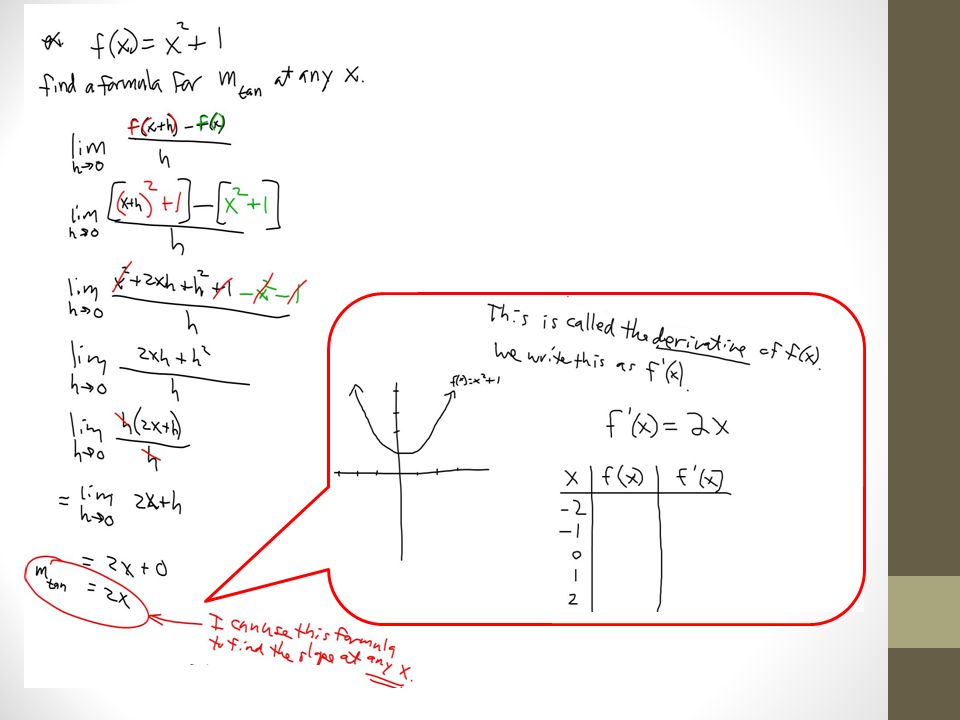 ex f(x) = x² + 1
find a formula for m_tan at any x.
lim h→0 f(x+h) - f(x) / h
lim h→0 [(x+h)² + 1] - [x² + 1] / h
lim h→0 x² + 2xh + h² + 1 - x² - 1 / h
lim h→0 2xh + h² / h
lim h→0 h(2x+h) / h
= lim h→0 2x+h
= 2x + 0
m_tan = 2x
I can use this formula
to find the slope at any x.
This is called the derivative of f(x).
We write this as f'(x).
f(x)=x²+1
f'(x) = 2x
x f(x) f'(x)
-2
-1
0
1
2